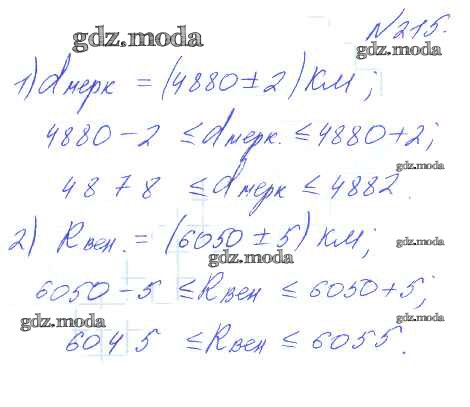 №215.
gdz.moda
gdz.moda
1) dмерк = (4880 ± 2) КМ;
4880 - 2 ≤ dмерк. ≤ 4880 + 2;
gdz.moda
4878 ≤ dмерк ≤ 4882.
2) Rвен. = (6050 ± 5) КМ;
gdz.moda
gdz.moda
6050 - 5 ≤ Rвен ≤ 6050 + 5;
gdz.moda
gdz.moda
6045 ≤ Rвен ≤ 6055.